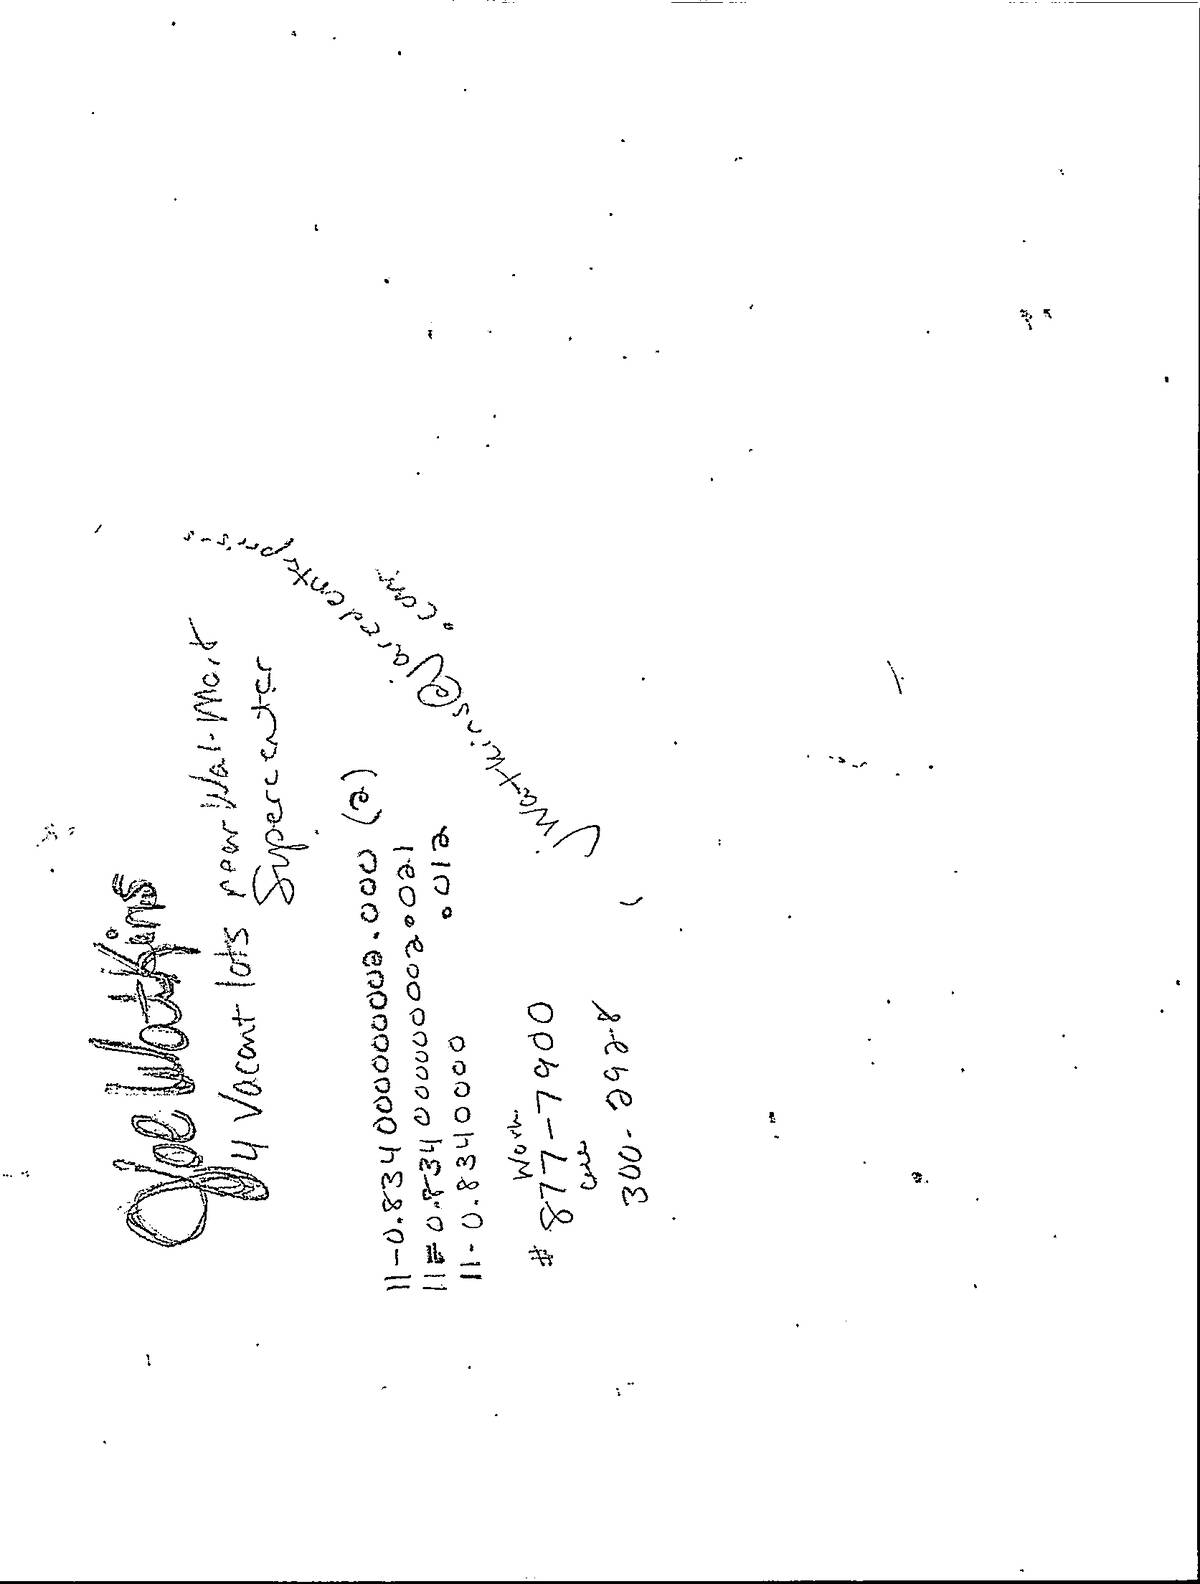 Joe Watkins
4 Vacant lots near Wal-Mart
Supercenter
11-0.8340000000002.000 (2)
11-0.834000000002.021
11-0.8340000 .012
jWatkins@jaredenterprises
.com
Work
# 877-7900
Cell
300-292-8